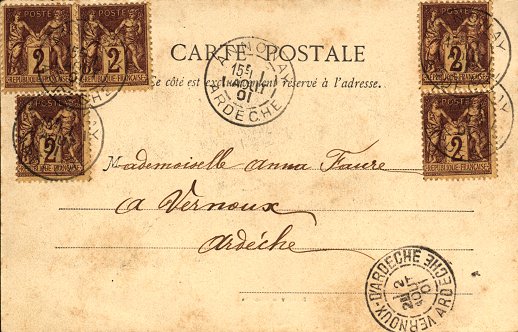 POSTES
2
REPUBLIQUE FRANÇAISE
POSTES
2
REPUBLIQUE FRANÇAISE
2
2
REPUBLIQUE FRANÇAISE
2
REPUBLIQUE FRANÇAISE
CARTE POSTALE
Ce côté est exclusivement réservé à l'adresse.
ANNONAY
15
1 AOUT
01
ARDÈCHE
Mademoiselle Anna Faure
à Vernoux
Ardèche
VERNOUX-D'ARDECHE
2
AOUT
01
ARDECHE